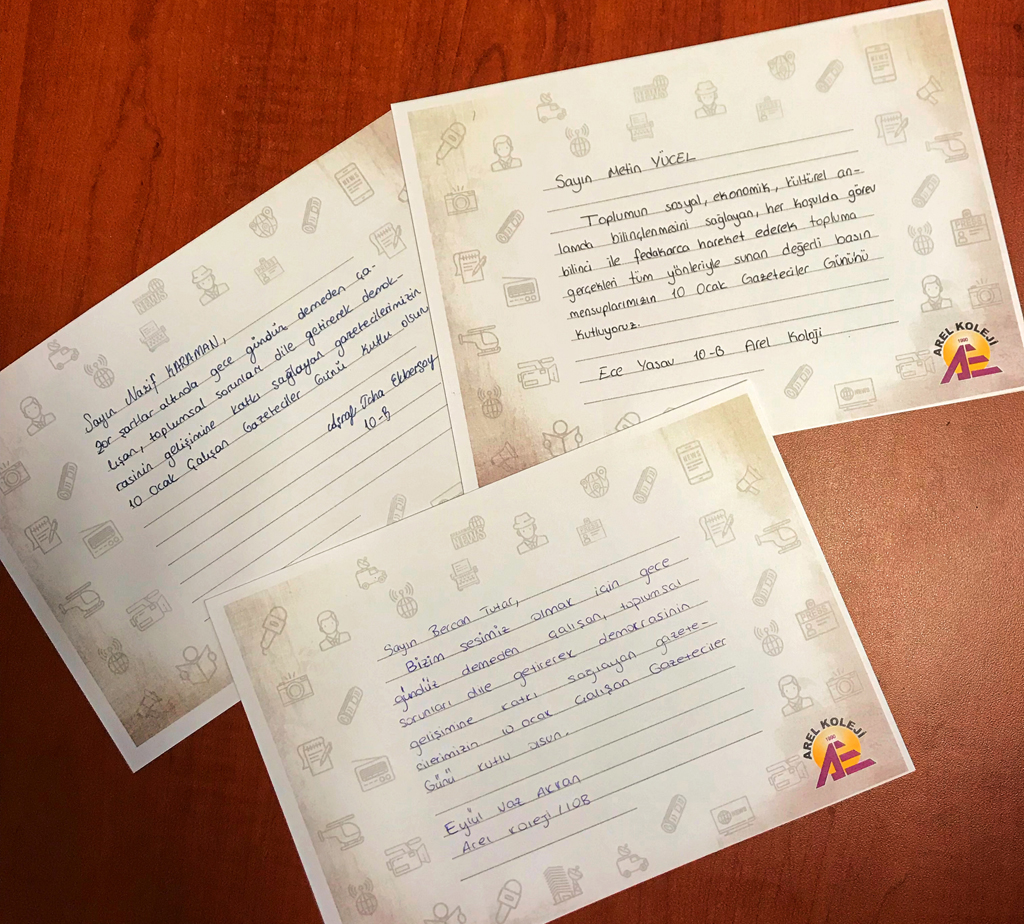 Sayın Nazif KARAMAN,
Zor şartlar altında gece gündüz demeden ça-
lışan, toplumsal sorunları dile getirerek demok-
rasinin gelişimine katkı sağlayan gazetecilerimizin
10 Ocak Çalışan Gazeteciler Günü kutlu olsun
Ekbersoy
10-B
Sayın Metin YÜCEL
Toplumun sosyal, ekonomik, kültürel an-
lamda bilinçlenmesini sağlayan, her koşulda görev
bilinci ile fedakarca hareket ederek topluma
gerçekleri tüm yönleriyle sunan değerli basın
mensuplarımızın 10 Ocak Gazeteciler Gününü
kutluyoruz.
Ece Yasav 10-B Arel Koleji
AREL KOLEJİ
1990
Sayın Bercan Tutar,
Bizim sesimiz olmak için gece
gündüz demeden çalışan, toplumsal
sorunları dile getirerek demokrasinin
gelişimine katkı sağlayan gazete-
cilerimizin 10 Ocak Çalışan Gazeteciler
Günü kutlu olsun.
Eylül Naz Akkan
Arel Koleji / 10B
AREL KOLEJİ
1990